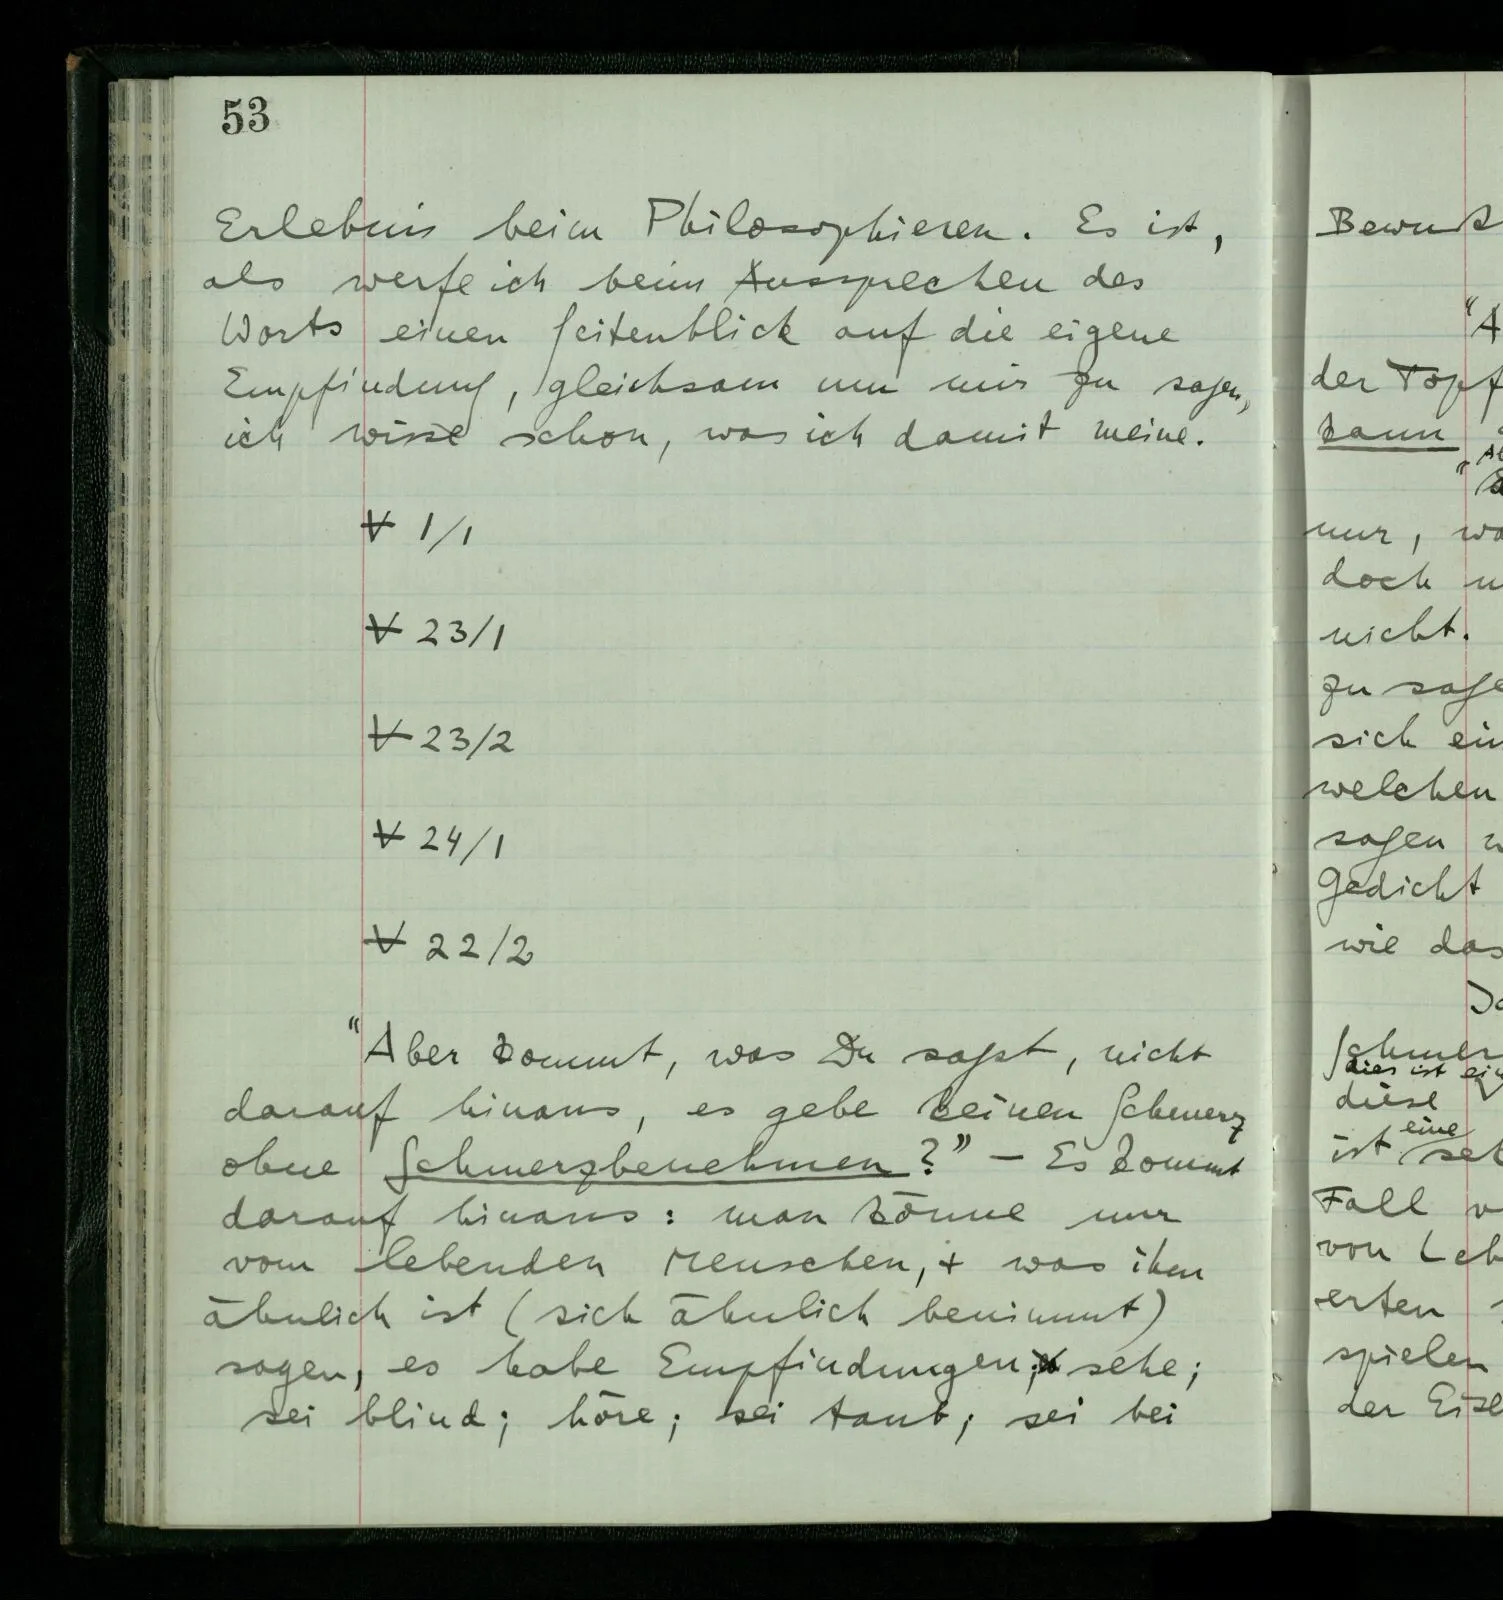 53
Erlebnis beim Philosophieren. Es ist,
als werfe ich beim Aussprechen des
Worts einen Seitenblick auf die eigene
Empfindung, gleichsam um mir zu sagen,
ich wisse schon, was ich damit meine.
V 1/1
V 23/1
V 23/2
V 24/1
V 22/2
"Aber kommt, was Du sagst, nicht
darauf hinaus, es gebe keinen Schmerz
ohne Schmerzbenehmen?" – Es kommt
darauf hinaus: man könne nur
vom lebenden Menschen, + was ihm
ähnlich ist (sich ähnlich benimmt)
sagen, es habe Empfindungen; sehe;
sei blind; höre; sei taub; sei bei
"A
der Topf
kann
nur,
doch
nicht.
zu sage
sich ein
welchen
sagen
Gedicht
wie das
Schmer
dies ist ein
diese
eine
ist
Fall v
von Leb
erten
spielen
der Eise